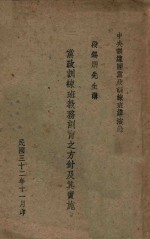 中央訓練團黨政訓練班講演錄
段錫朋先生講
黨政訓練班教務訓育之方針及其實施
民國三十二年十一月印